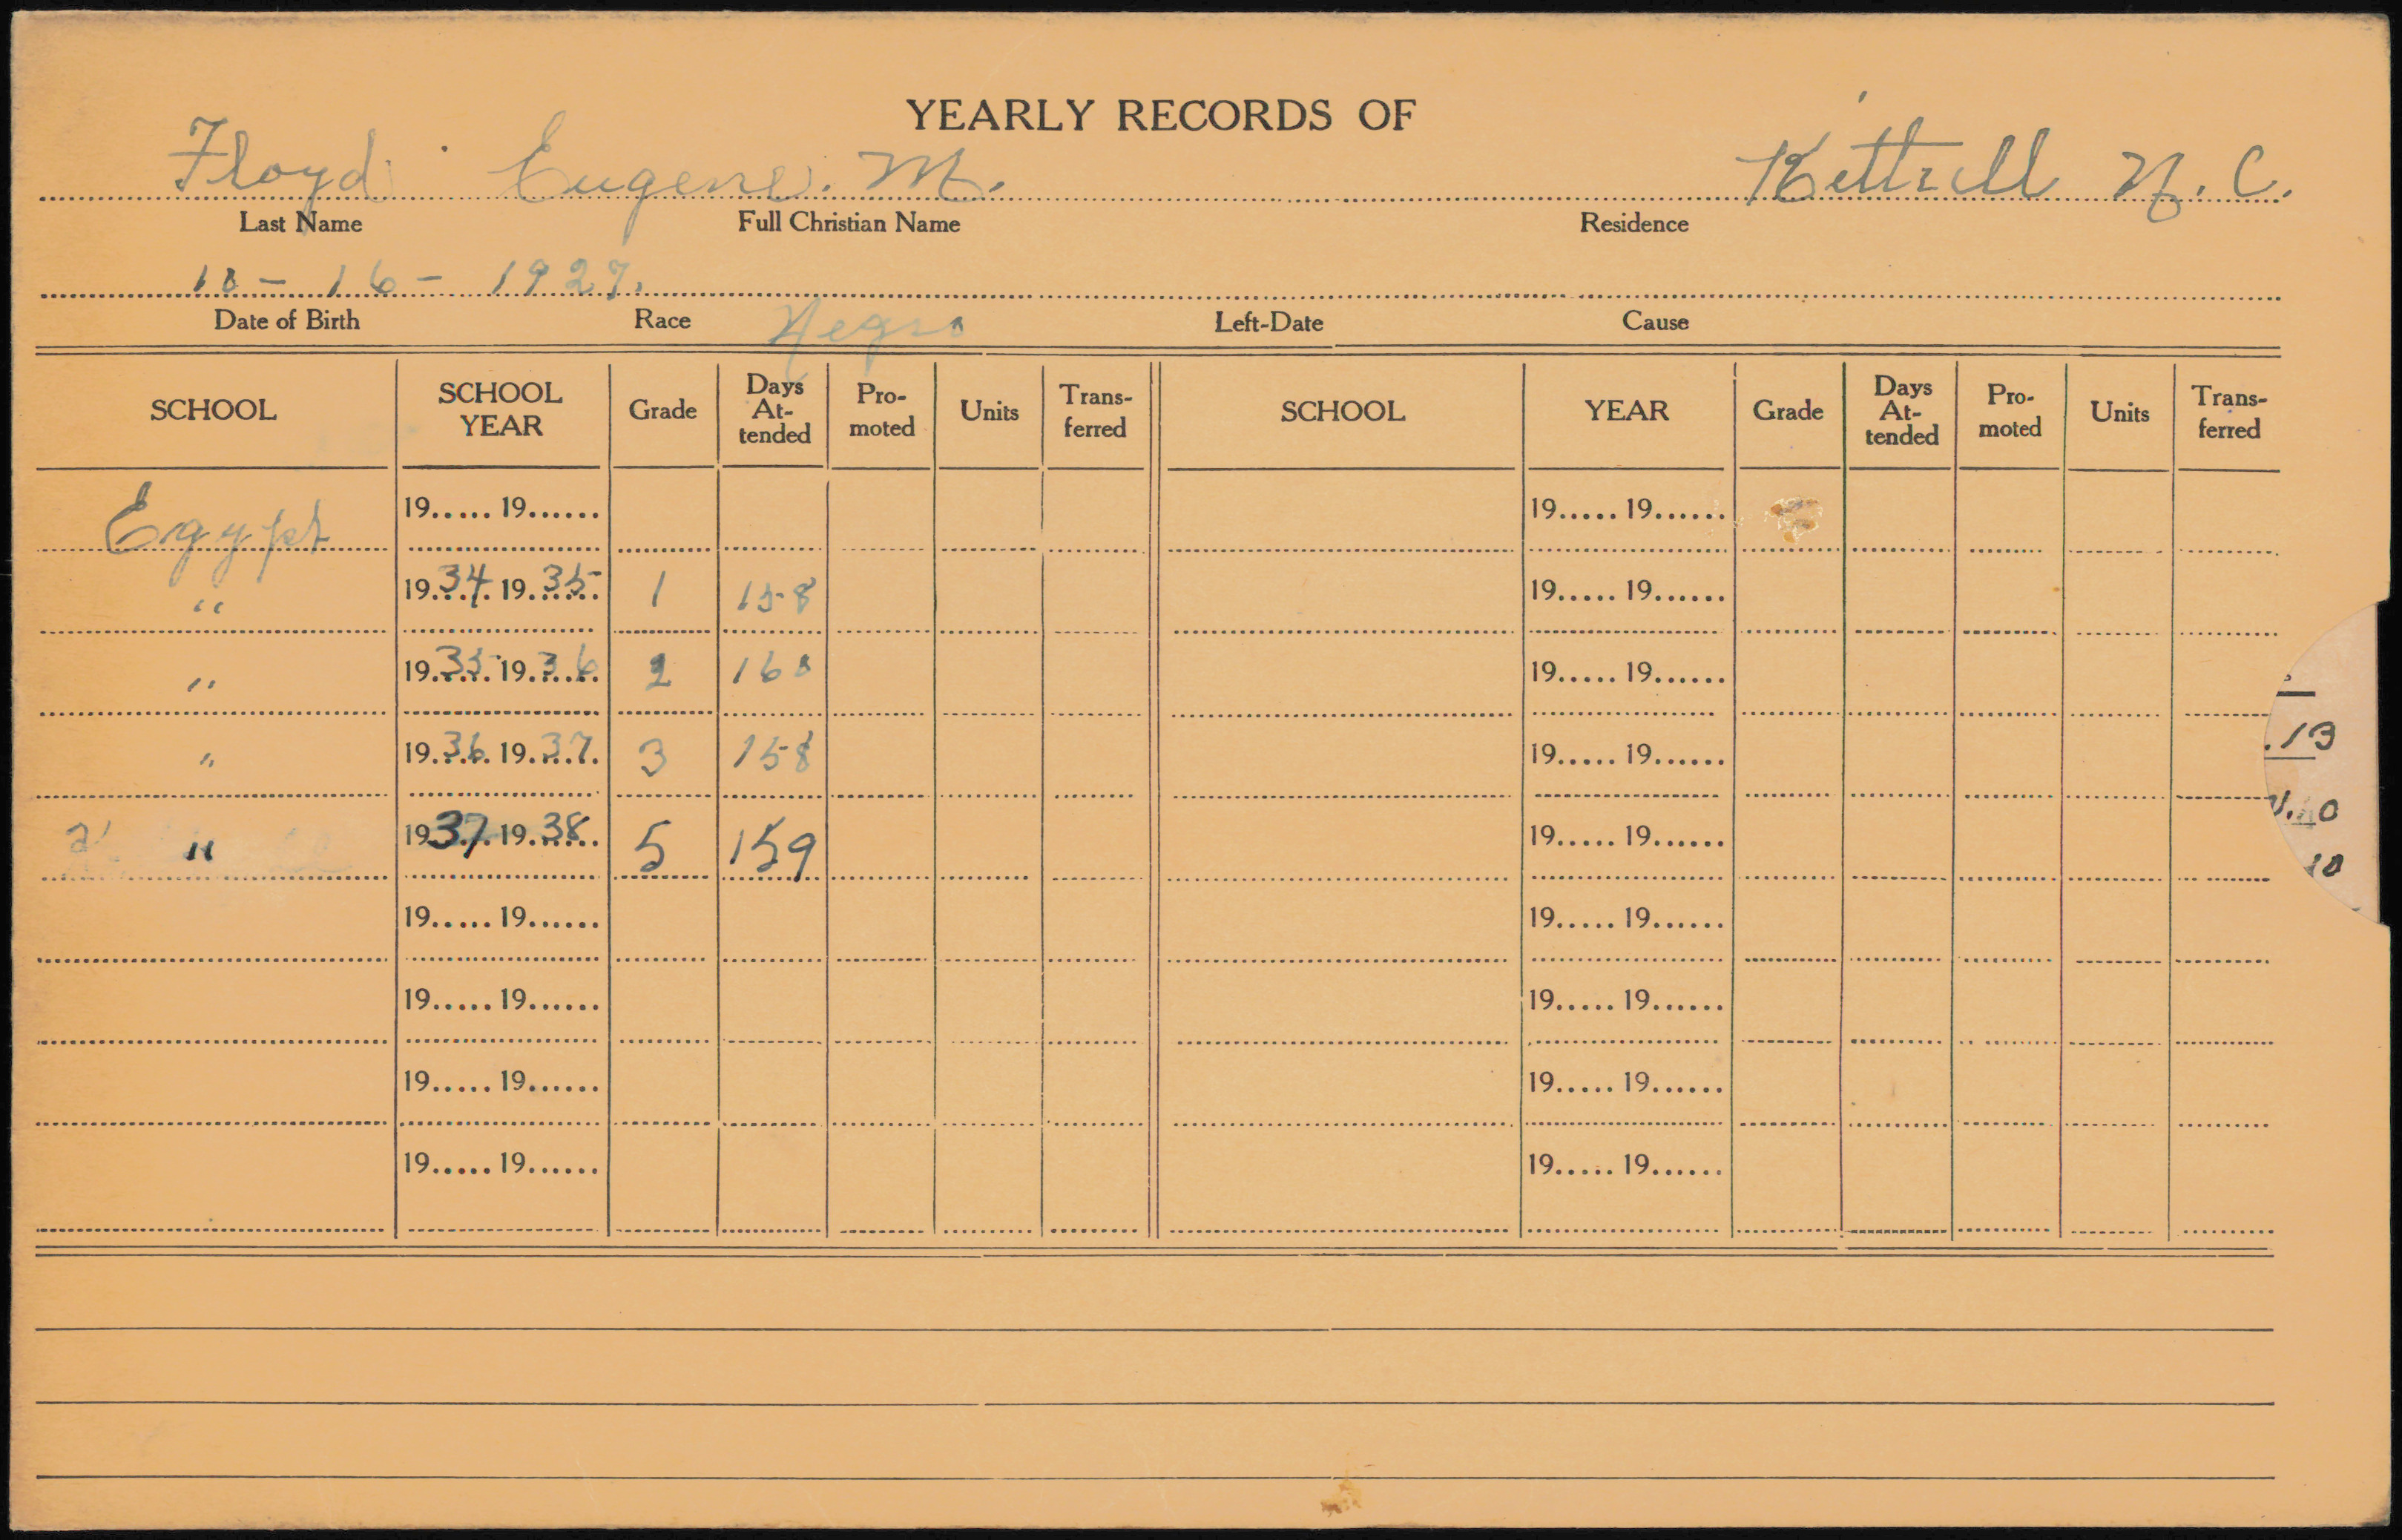 YEARLY RECORDS OF
Floyd Eugene. M. Kittrell N. C.
Last Name Full Christian Name Residence
10 - 16 - 1927.
Date of Birth Race Negro Left-Date Cause
SCHOOL SCHOOL YEAR Grade Days At-tended Pro-moted Units Trans-ferred SCHOOL YEAR Grade Days At-tended Pro-moted Units Trans-ferred
Egypt 19..... 19...... 19..... 19......
" 19.34. 19.35. 1 158 19..... 19......
" 19.35. 19.36. 2 160 19..... 19......
" 19.36. 19.37. 3 158 19..... 19......
.13
" 19.37. 19.38. 5 159 19..... 19......
10
19..... 19...... 19..... 19......
19..... 19...... 19..... 19......
19..... 19...... 19..... 19......
19..... 19...... 19..... 19......